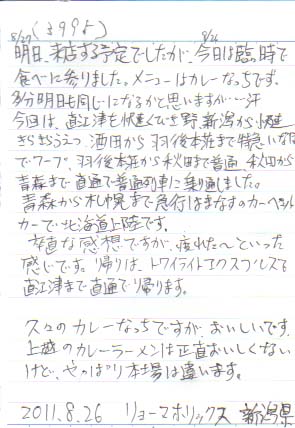 8/27 (399よ) 8/26
明日、来店する予定でしたが、今日は臨時で
食べに参りました。メニューはカレーなっちです。
多分明日も同じになるかと思いますが…汗
今回は、直江津も快速くびき野、新潟から快速
きらきらうえつ、酒田から羽後本荘まで特急いなほ
でワープ、羽後本荘から秋田まで普通、秋田から
青森まで直通で普通列車に乗り通しました。
青森から札幌まで急行はまなすのカーペット
カーで北海道上陸です。
率直な感想ですが、疲れた〜といった
感じです。帰りは、トワイライトエクスプレスで
直江津まで直通で帰ります。
久々のカレーなっちですが、おいしいです。
上越のカレーラーメンは正直おいしくない
けど、やっぱり本場は違います。
2011.8.26 リョーマホリックス 新潟県